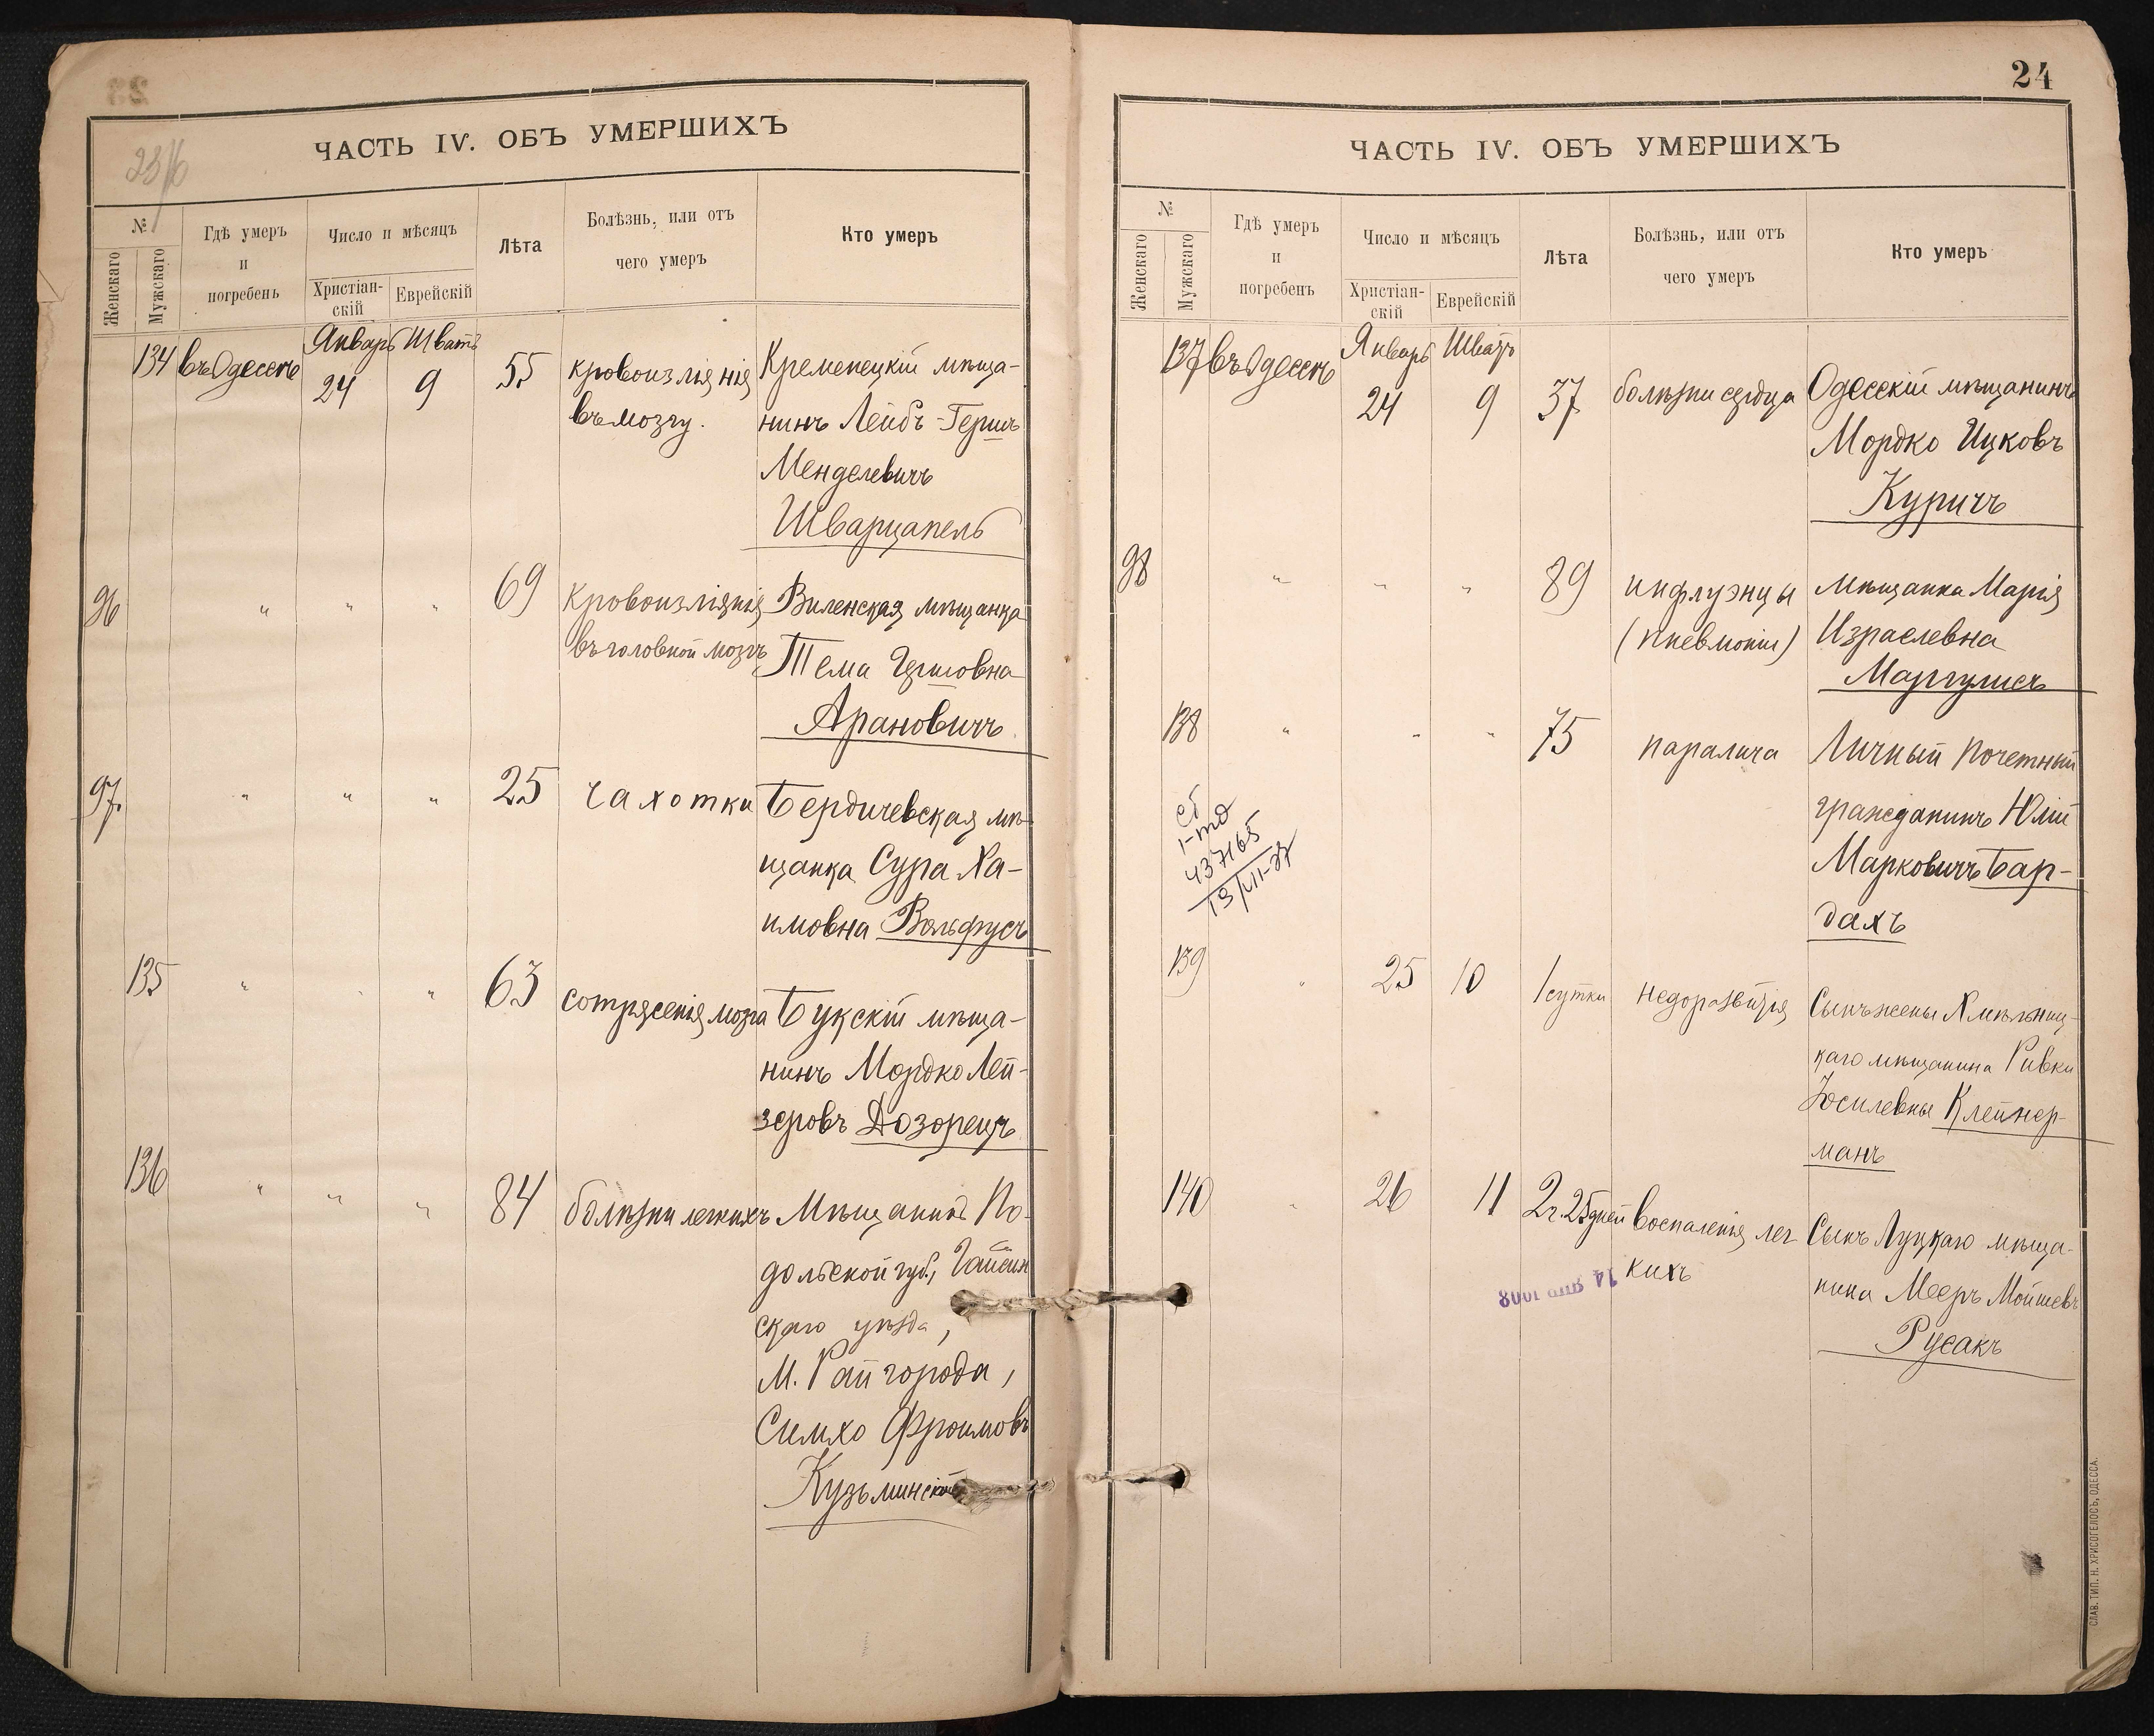 ЧАСТЬ IV. ОБЪ УМЕРШИХЪ
№
Женскаго
Мужскаго
Гдѣ умеръ
и
погребенъ
Число и мѣсяцъ
Христіан-
скій
Еврейскій
Лѣта
Болѣзнь, или отъ
чего умеръ
Кто умеръ
Январь Шватъ
134 въ Одессѣ 24 9 55 кровоизліянія Кременецкій мѣща-
въ мозгу. нинъ Лейбъ-Гершъ
Менделевичъ
Шварцапель
96 " " " 69 кровоизліянія Виленская мѣщанка
въ головной мозгъ Тема
Арановичъ
97. " " " 25 чахотки Бердичевская мѣ-
щанка Сура Ха-
имовна Вольфусъ
135 " " " 63 сотрясенія мозга Букскій мѣща-
нинъ Мордко Лей-
зеровъ Дозорецъ
136 " " " 84 болѣзни легкихъ Мѣщанинъ По-
дольской губ., Гайсин
скаго уѣзда,
м. Райгорода,
Симхо Фроимовъ
Кузьминскій
24
ЧАСТЬ IV. ОБЪ УМЕРШИХЪ
№
Женскаго
Мужскаго
Гдѣ умеръ
и
погребенъ
Число и мѣсяцъ
Христіан-
скій
Еврейскій
Лѣта
Болѣзнь, или отъ
чего умеръ
Кто умеръ
Январь Шватъ
137 въ Одессѣ 24 9 37 болѣзни сердца Одесскій мѣщанинъ
Мордко Ицковъ
Куричъ
98 " " " 89 инфлуэнцы мѣщанка Марія
(пневмоніи) Израелевна
Маргулисъ
138 " " " 75 паралича Личный почетный
гражданинъ Юлій
Марковичъ Бар-
дахъ
437165
13/VII-27
139 " 25 10 1 сутки недоразвитія Сынъ жены Хмѣльниц-
каго мѣщанина Ривки
Іосилевны Клейнер-
манъ
140 " 26 11 2 г. 25 дней воспаленія лег Сынъ Луцкаго мѣща-
кихъ нина Мееръ Мойшевъ
Русакъ
СЛАВ. ТИП. Н. ХРИСОГЕЛОСЪ, ОДЕССА.